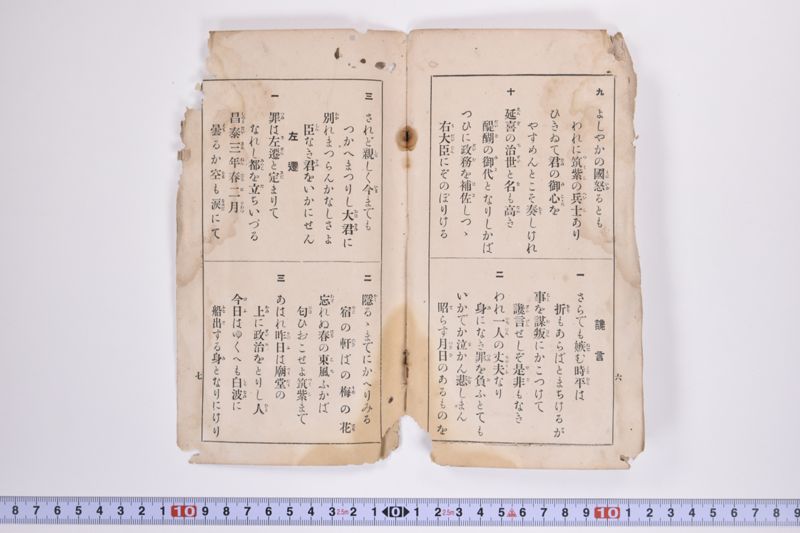 九
よしやかの國怒るとも
われに筑紫の兵士あり
ひきゐて君の御心を
やすめんとこそ奏しけれ
十
延喜の治世と名も高き
醍醐の御代となりしかば
つひに政務を補佐しつゝ
右大臣にぞのぼりける
讒言
一
さらでも嫉む時平は
折もあらばとまちけるが
事を謀叛にかこつけて
讒言せしぞ是非もなき
二
われ一人の丈夫なり
身になき罪を負ふとても
いかでか泣かん悲しまん
昭らす月日のあるものを
六
三
されど親しく今までも
つかへまつりし大君に
別れまつらんかなしさよ
臣なき君をいかにせん
左遷
一
罪は左遷と定まりて
なれし都を立ちいづる
昌泰三年春二月
曇るか空も涙にて
二
隱るゝまでにかへりみる
宿の軒ばの梅の花
忘れぬ春の東風ふかば
匂ひおこせよ筑紫まで
三
あはれ昨日は廟堂の
上に政治をとりし人
今日はゆくへも白波に
船出する身となりにけり
七
8 7 6 5 4 3 2 1 10 9 8 7 6 5 4 3 2.5m 2 1 0 1 2 2.5m 3 4 5 6 7 8 9 10 1 2 3 4 5 6 7 8 9